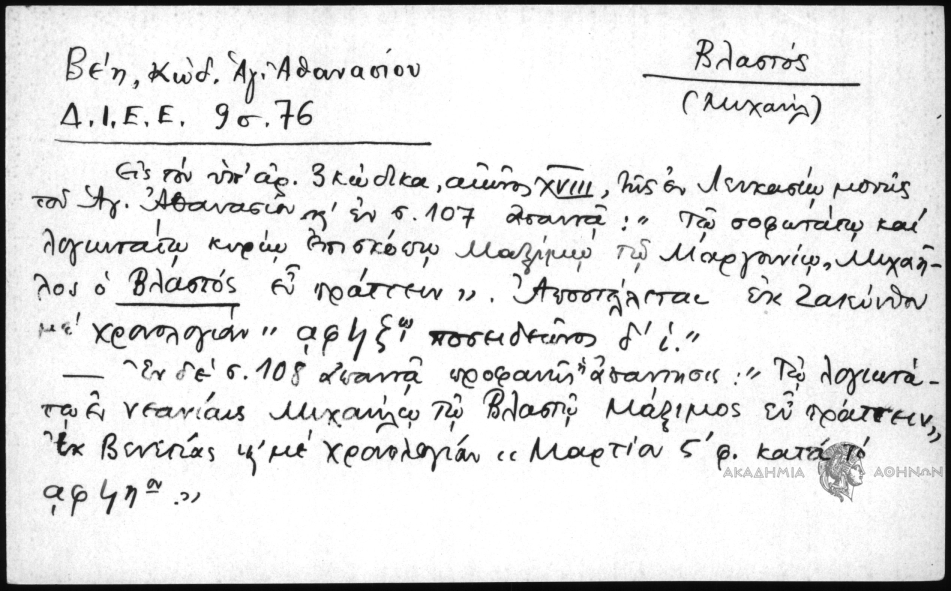 Βέη, Κώδ. Ἁγ. Ἀθανασίου
Δ.Ι.Ε.Ε. 9 σ. 76
Βλαστός
(Μιχαήλ)
Εἰς τὸν ὑπ' ἀρ. 3 κώδικα, αἰῶνος XVIII, τῆς ἐν Λευκασίῳ μονῆς
τοῦ Ἁγ. Ἀθανασίου κ' ἐν σ. 107 ἀπαντᾷ: " Τῷ σοφωτάτῳ καὶ
λογιωτάτῳ κυρίῳ ἐπισκόπῳ Μαξίμῳ τῷ Μαργουνίῳ, Μιχαῆ-
λος ὁ Βλαστός εὖ πράττειν ". Ἀποστέλλεται ἐκ Ζακύνθου
μέ χρονολογίαν " αφϟ ποσειδεῶνος δ' ἱ. "
— Ἐν δέ σ. 108 ἀπαντᾷ προφανῶς ἡ ἀπάντησις: " Τῷ λογιωτά-
τῳ ἐν νεανίαις Μιχαήλῳ τῷ Βλαστῷ Μάξιμος εὖ πράττειν "
Ἐκ Βενετίας κ' μέ χρονολογίαν " Μαρτίου ς' φ. κατά τό
αφϟηον ."
ΑΚΑΔΗΜΙΑ ΑΘΗΝΩΝ